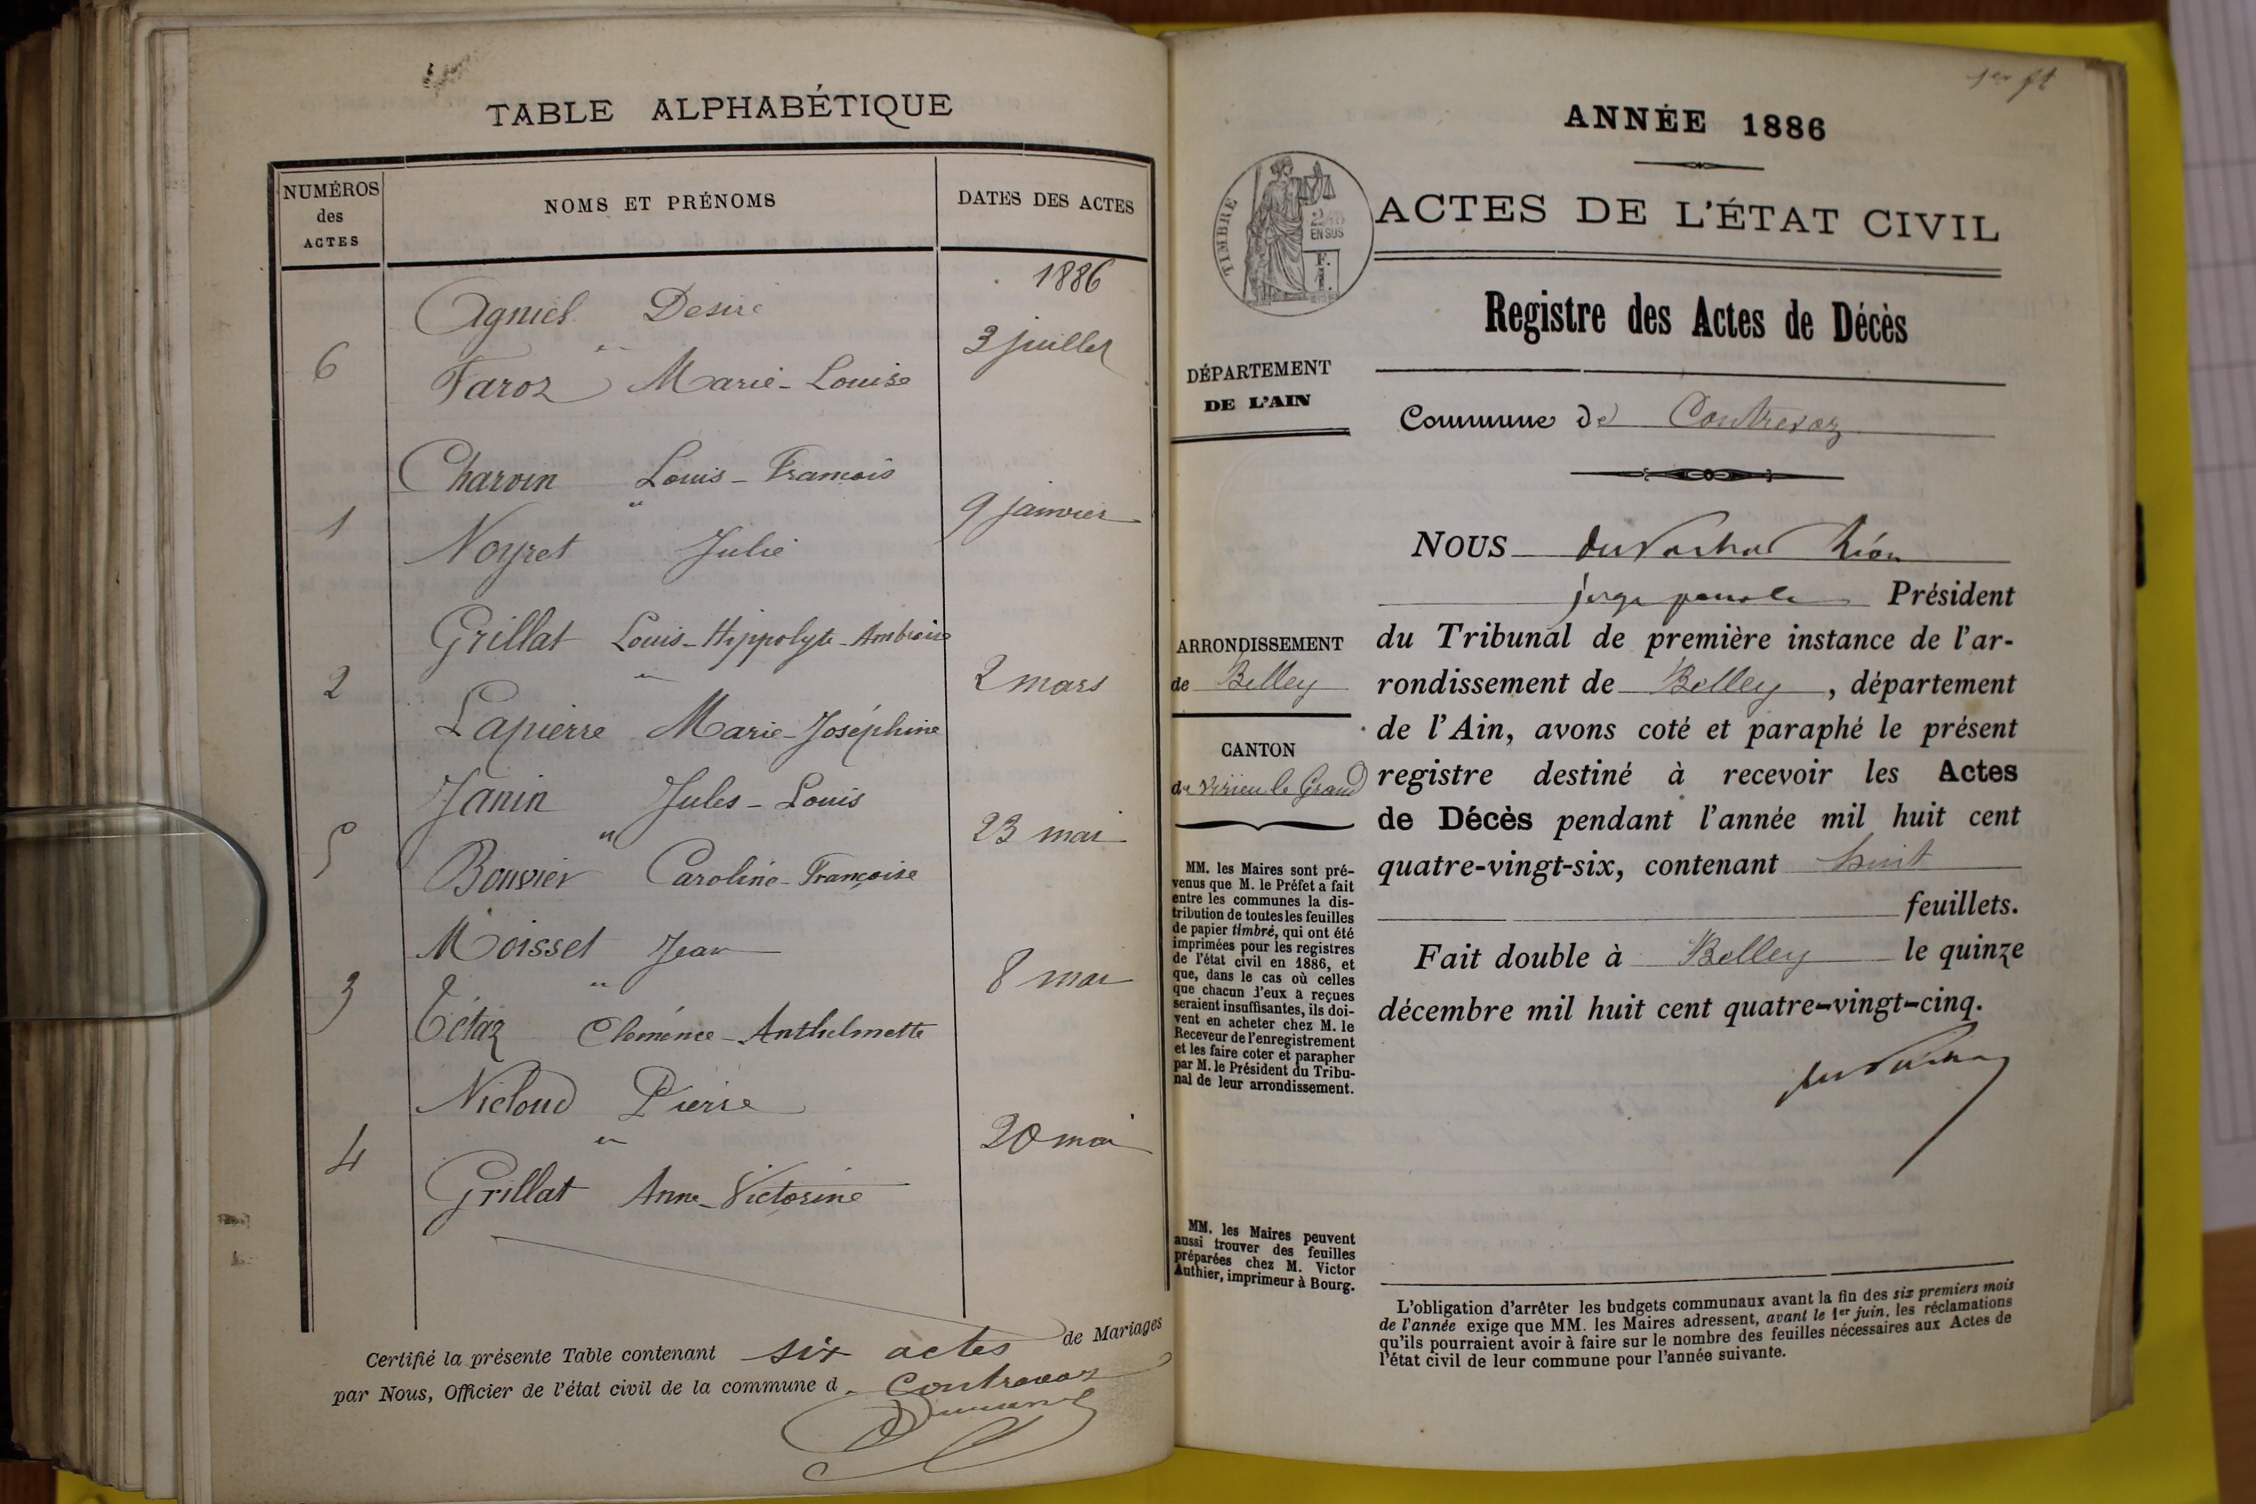 TABLE ALPHABÉTIQUE
NUMÉROS
des
ACTES
NOMS ET PRÉNOMS
DATES DES ACTES
1886
Agniel Desiré
6 3 juillet
Faroz Marie-Louise
Charvin Louis-François
1 9 janvier
Noyret Julie
Grillat Louis-Hippolyte-Ambroise
2 2 mars
Lapierre Marie-Joséphine
Janin Jules-Louis
5 23 mai
Bouvier Caroline-Françoise
Moisset Jean
3 8 mai
Tétaz Clémence-Anthelmette
Nicloud Pierre
4 20 mai
Grillat Anne-Victorine
Certifié la présente Table contenant six actes de Mariages
par Nous, Officier de l'état civil de la commune d. Contrevoz
1er ft
ANNÉE 1886
TIMBRE
EN SUS
ACTES DE L'ÉTAT CIVIL
Registre des Actes de Décès
DÉPARTEMENT
DE L'AIN
Commune de Contrevoz
NOUS
Président
du Tribunal de première instance de l'ar-
rondissement de Belley, département
de l'Ain, avons coté et paraphé le présent
registre destiné à recevoir les Actes
de Décès pendant l'année mil huit cent
quatre-vingt-six, contenant huit
feuillets.
Fait double à Belley le quinze
décembre mil huit cent quatre-vingt-cinq.
ARRONDISSEMENT
de Belley
CANTON
de Virieu le Grand
MM. les Maires sont pré-
venus que M. le Préfet a fait
entre les communes la dis-
tribution de toutes les feuilles
de papier timbré, qui ont été
imprimées pour les registres
de l'état civil en 1886, et
que, dans le cas où celles
que chacun d'eux a reçues
seraient insuffisantes, ils doi-
vent en acheter chez M. le
Receveur de l'enregistrement
et les faire coter et parapher
par M. le Président du Tribu-
nal de leur arrondissement.
MM. les Maires peuvent
aussi trouver des feuilles
préparées chez M. Victor
Authier, imprimeur à Bourg.
L'obligation d'arrêter les budgets communaux avant la fin des six premiers mois
de l'année exige que MM. les Maires adressent, avant le 1er juin, les réclamations
qu'ils pourraient avoir à faire sur le nombre des feuilles nécessaires aux Actes de
l'état civil de leur commune pour l'année suivante.